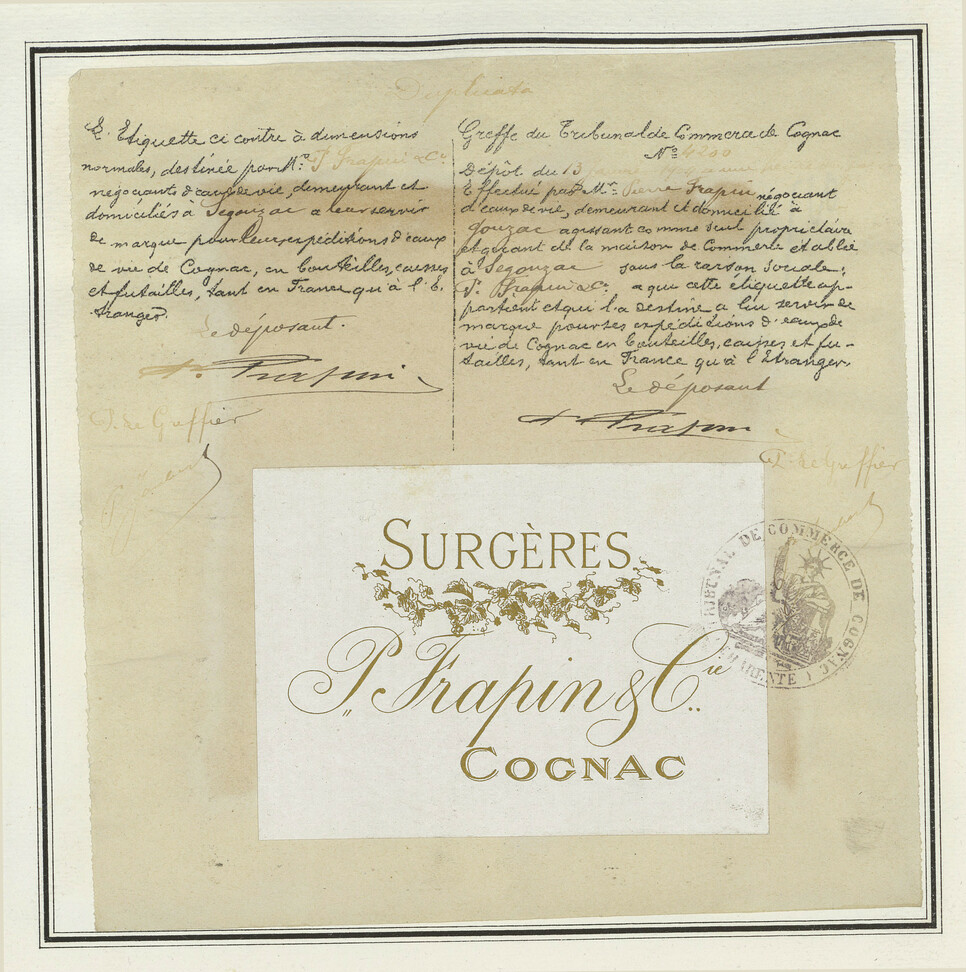 Duplicata
L'Etiquette ci contre à dimensions
normales, destinée par Mr. P. Frapin & Cie
négociants d'eaux de vie, demeurant et
domiciliés à Segonzac a leur servir
de marque pour leurs expéditions d'eaux
de vie de Cognac, en bouteilles, caisses
et futailles, tant en France qu'à l'E-
tranger.
Le déposant.
P. Frapin
P. Le Greffier
Greffe du Tribunal de Commerce de Cognac
No 4200
Dépôt du 13
Effectué par Mr. Pierre Frapin négociant
d'eaux de vie, demeurant et domicilié à
gonzac agissant comme seul propriétaire
et gérant de la maison de Commerce établie
à Segonzac sous la raison sociale:
P. Frapin & Cie. a qui cette étiquette ap-
partient et qui l'a destine a lui servir de
marque pour ses expéditions d'eaux de
vie de Cognac en bouteilles, caisses et fu-
tailles, tant en France qu'à l'Etranger.
Le déposant
P. Frapin
P. Le Greffier
SURGÈRES
P. Frapin & Cie.
COGNAC
TRIBUNAL DE COMMERCE DE COGNAC
CHARENTE